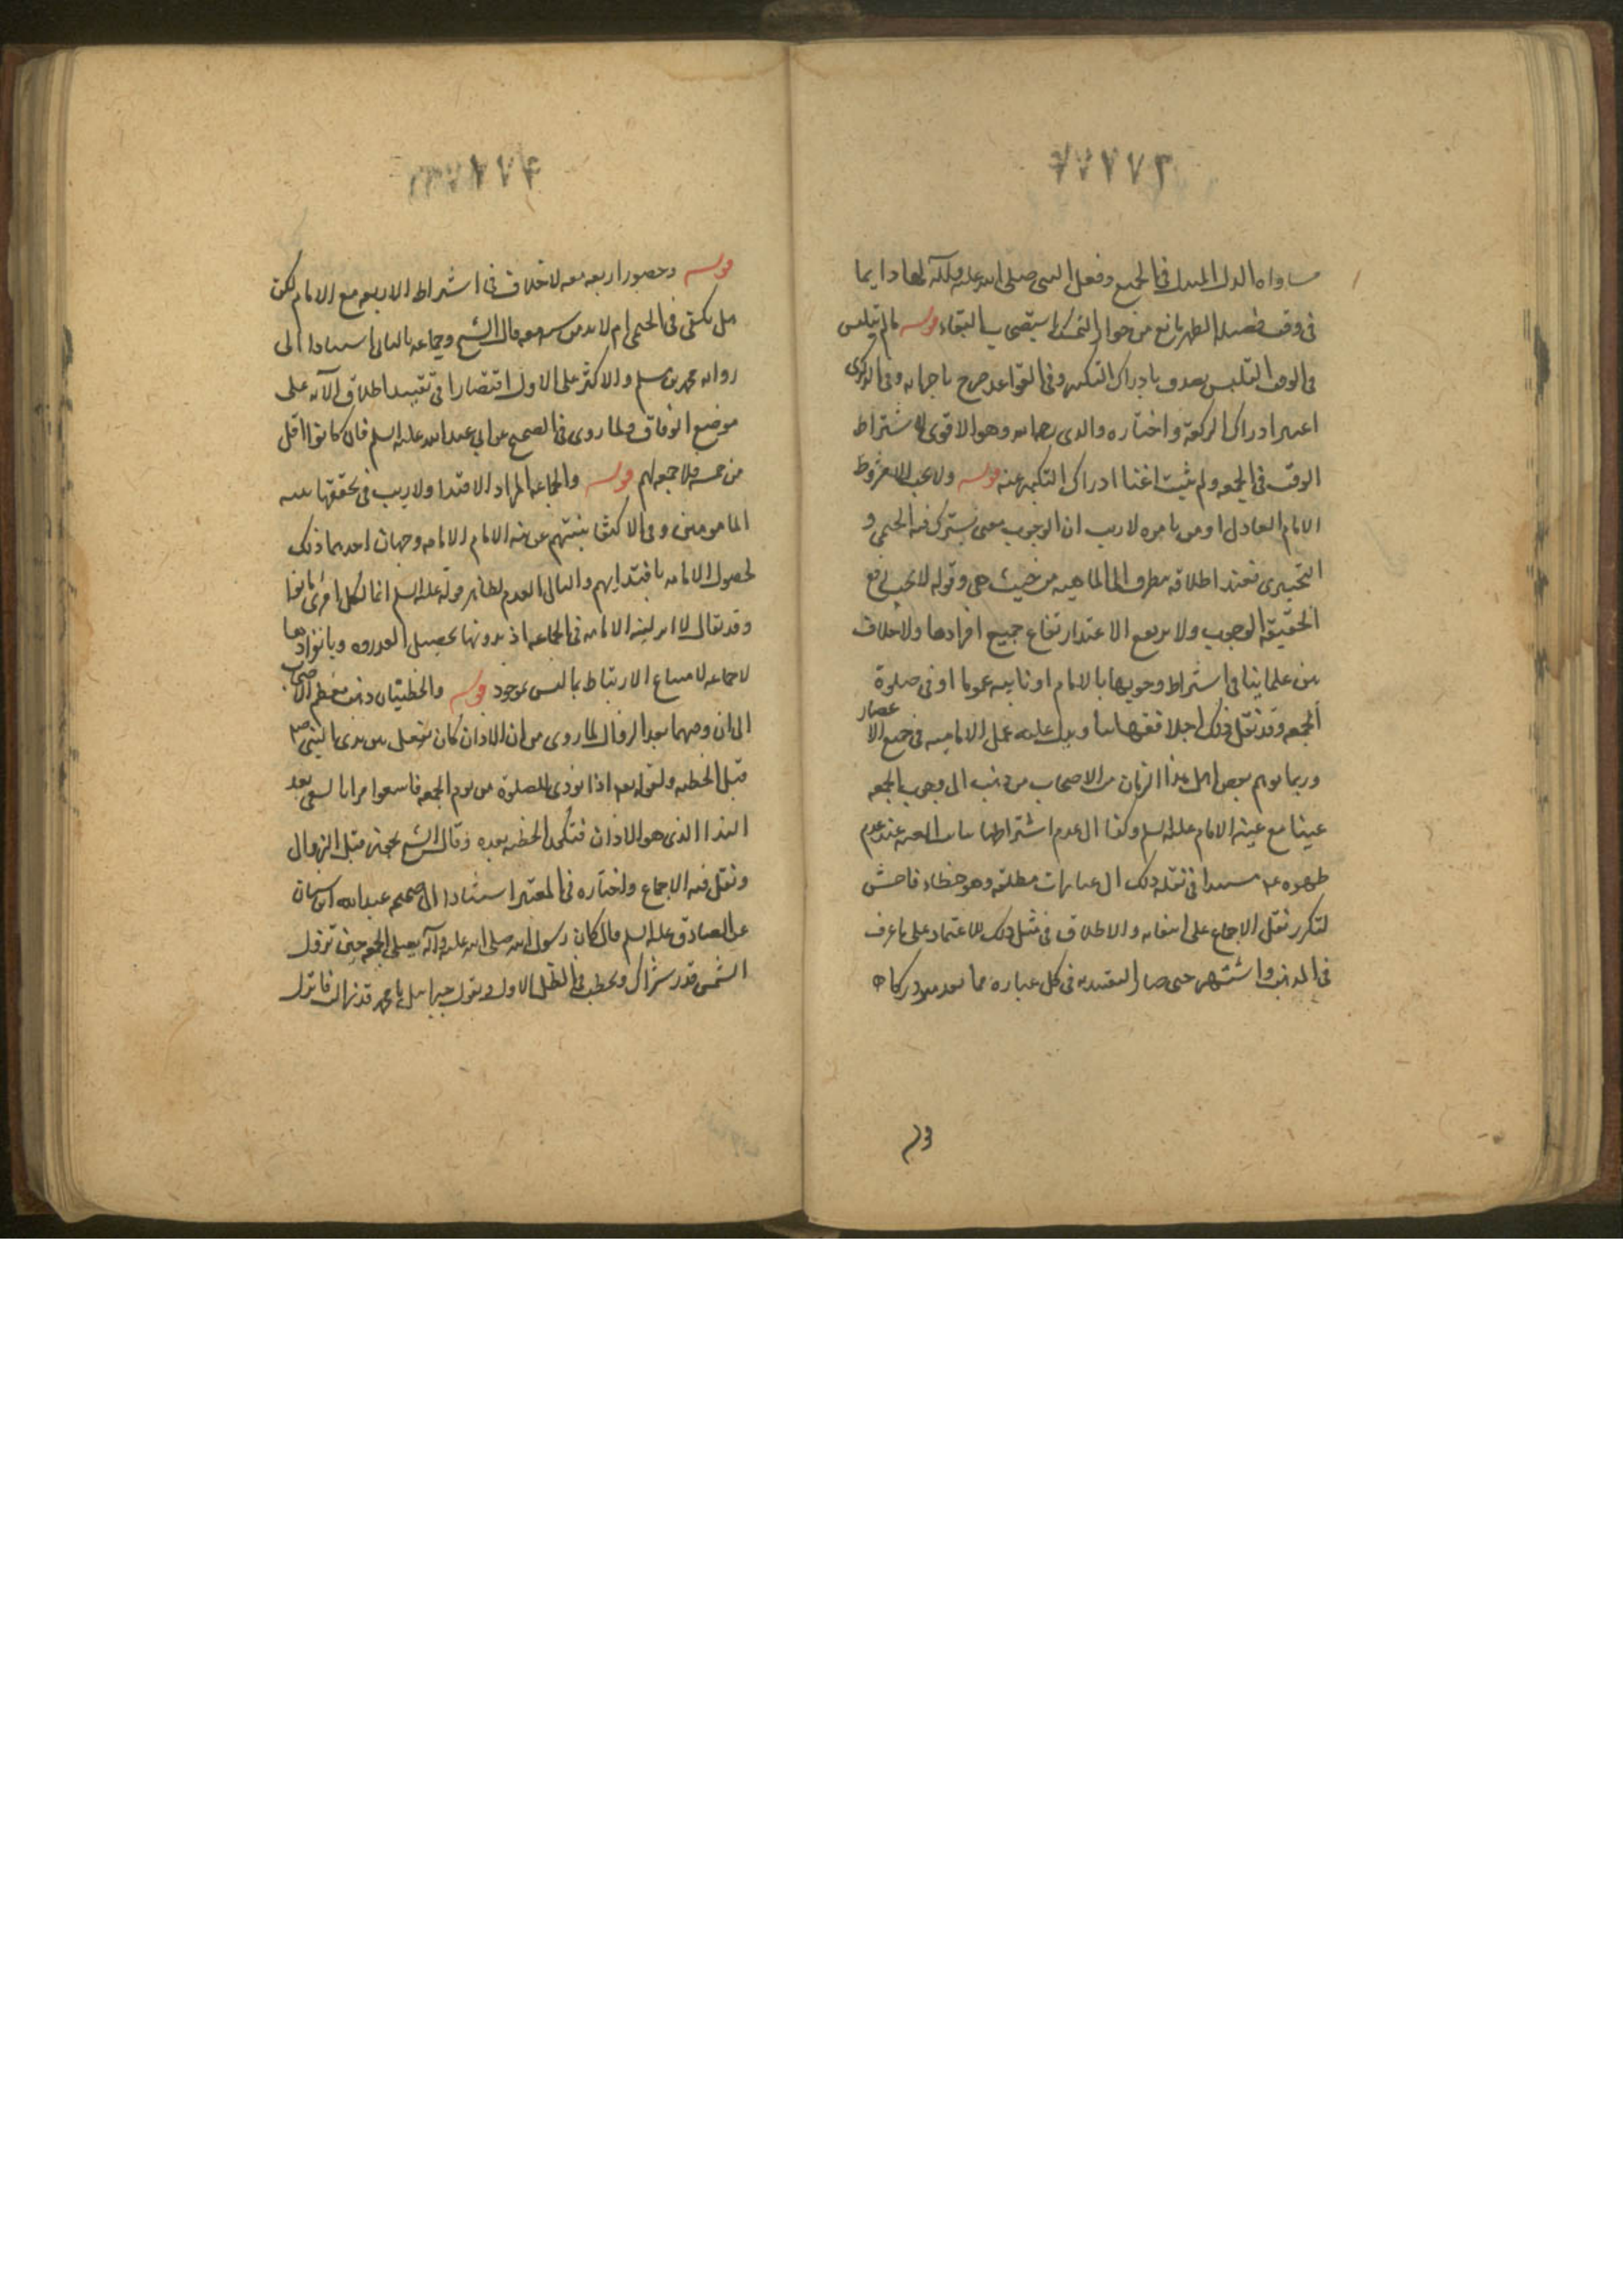 ٧٧٧٧٣
مساواه البدل المبدل فى الجميع وفعل النبى صلى الله عليه وآله لها دايما
فى وقت فضيله الظهر مانع من جواز التمسك باستصحاب البقاء قوله ما لم يتلبس
فى الوقت التلبس يصدق بادراك التكبيره وفى القواعد صرح باجزائه وفى الذكرى
اعتبر ادراك الركعة واختاره والدى وهو الاقوى لاشتراط
الوقت فى الجمعه ولم يثبت اغنا ادراك التكبيره عنه قوله ولا تجب الا بشروط
الامام العادل او من يامره لا ريب ان الوجوب معنى يشترك فيه الحتمى و
التخييرى فعند اطلاقه ينظر الى الماهيه من حيث هى وقوله لا تجب رفع
لحقيقة الوجوب ولا يرتفع الا عند ارتفاع جميع افرادها ولا خلاف
بين علماينا فى اشتراط وجوبها بالامام او نايبه عموما او فى صلوة
الجمعه وقد نقل ذلك اجلا فقهاينا ويدل عليه عمل الاماميه فى جميع الا
عصار
وربما توهم بعض اهل هذا الزمان من الاصحاب من ذهب الى وجوب الجمعه
عينا مع غيبة الامام عليه السلم وكذا الى عدم اشتراطها بنايب الغيبه عند عدم
ظهوره ع مستندا فى نقله ذلك الى عبارات مطلقه وهو خطاء فاحش
لتكرر نقل الاجماع على انتفائه والاطلاق فى مثل ذلك للاعتماد على ما عرف
فى المذهب واشتهر حتى صار التقييد به فى كل عباره مما يعد
٧٧٧٧۴
قوله وحضور اربعه معه لا خلاف فى اشتراط الاربعه مع الامام لكن
هل يكتفى فى الحتمى ام لا بد من سته معه قال الشيخ وجماعه بالثانى استنادا الى
روايه محمد بن مسلم والاكثر على الاول اقتصارا فى تقييد اطلاق الآيه على
موضع الوفاق ولما روى فى الصحيح عن ابى عبد الله عليه السلم فان كانوا اقل
من خمسه فلا جمعه لهم قوله والجماعه المراد الاقتدا ولا ريب فى تحققها بنيه
المامومين وفى الاكتفا بنيتهم عن نيه الامام الامامه وجهان احدهما ذلك
لحصول الامامه باقتدايهم والثانى العدم لظاهر قوله عليه السلم انما لكل امرئ ما نوا
وقد يقال لا اثر لنيه الامامه فى الجماعه اذ بدونها تحصل وبانفرادها
لا جماعه لامتناع الارتباط بما ليس بموجود قوله والخطبتان ذهب معظم الا
صحاب
الى ان وقتهما بعد الزوال لما روى من ان الاذان كان يفعل بين يدى النبى ص
قبل الخطبه ولقوله تعالى اذا نودى للصلوة من يوم الجمعه فاسعوا مرانا السعى بعد
الندا الذى هو الاذان فتكون الخطبه بعده وقال الشيخ يجوز قبل الزوال
ونقل فيه الاجماع واختاره فى المعتبر استنادا الى صحيحه عبد الله ابن سنان
عن الصادق عليه السلم قال كان رسول الله صلى الله عليه وآله يصلى الجمعه حين تزول
الشمس قدر شراك ويخطب فى الظل الاول ويقول جبرائيل يا محمد قد زالت فانزل